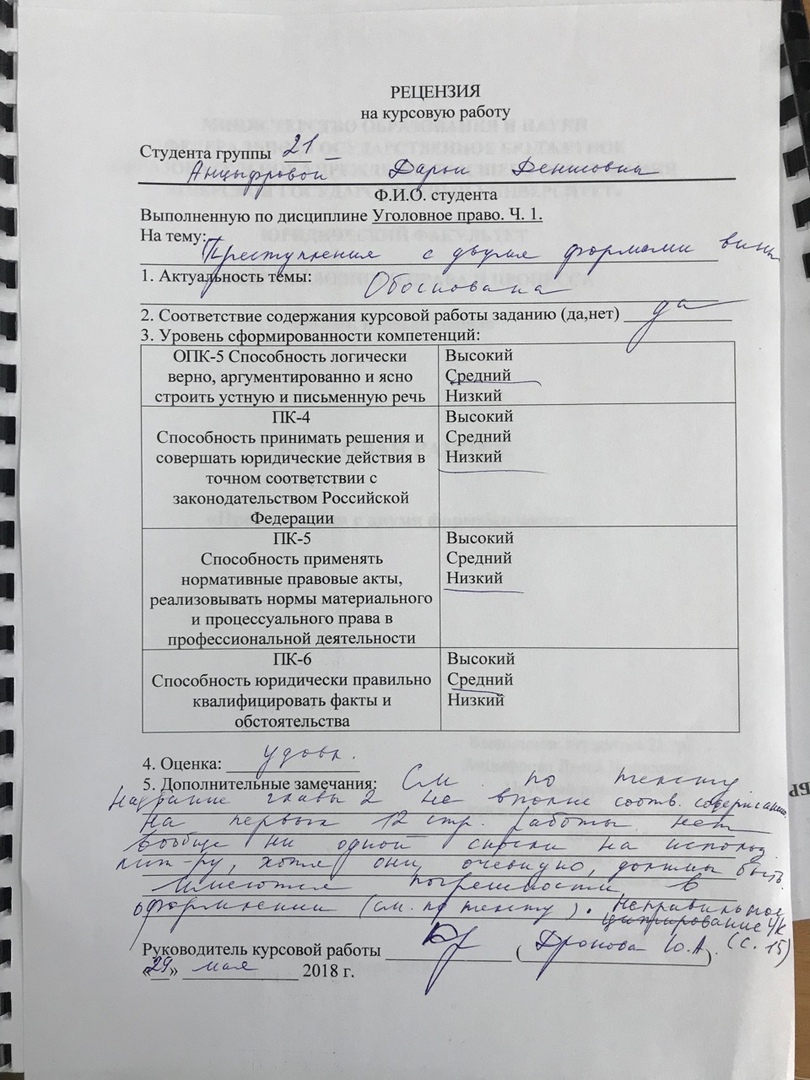 РЕЦЕНЗИЯ
на курсовую работу
Студента группы 21
Анцыфровой Дарьи Денисовны
Ф.И.О. студента
Выполненную по дисциплине Уголовное право. Ч. 1.
На тему: Преступления с двумя формами вины
1. Актуальность темы: Обоснована
2. Соответствие содержания курсовой работы заданию (да,нет) да
3. Уровень сформированности компетенций:
ОПК-5 Способность логически
верно, аргументированно и ясно
строить устную и письменную речь
Высокий
Средний
Низкий
ПК-4
Способность принимать решения и
совершать юридические действия в
точном соответствии с
законодательством Российской
Федерации
Высокий
Средний
Низкий
ПК-5
Способность применять
нормативные правовые акты,
реализовывать нормы материального
и процессуального права в
профессиональной деятельности
Высокий
Средний
Низкий
ПК-6
Способность юридически правильно
квалифицировать факты и
обстоятельства
Высокий
Средний
Низкий
4. Оценка: удовл.
5. Дополнительные замечания: См. по тексту.
Название главы 2 не вполне соотв. содержанию.
На первых 12 стр. работы нет
вообще ни одной сноски на использ.
лит-ру, хотя они, очевидно, должны быть.
Имеются погрешности в
оформлении (см. по тексту). Неправильное
цитирование УК
Руководитель курсовой работы (Дронова Ю.А.) (с. 15)
«29» мая 2018 г.